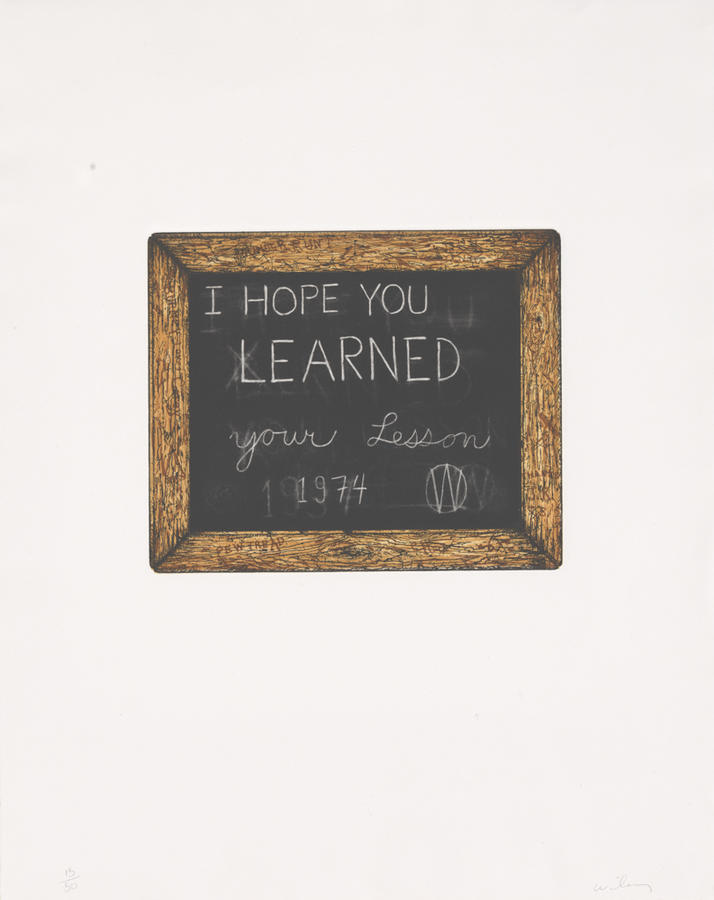 I HOPE YOU
LEARNED
your Lesson
1974 W
15
50
Wiley